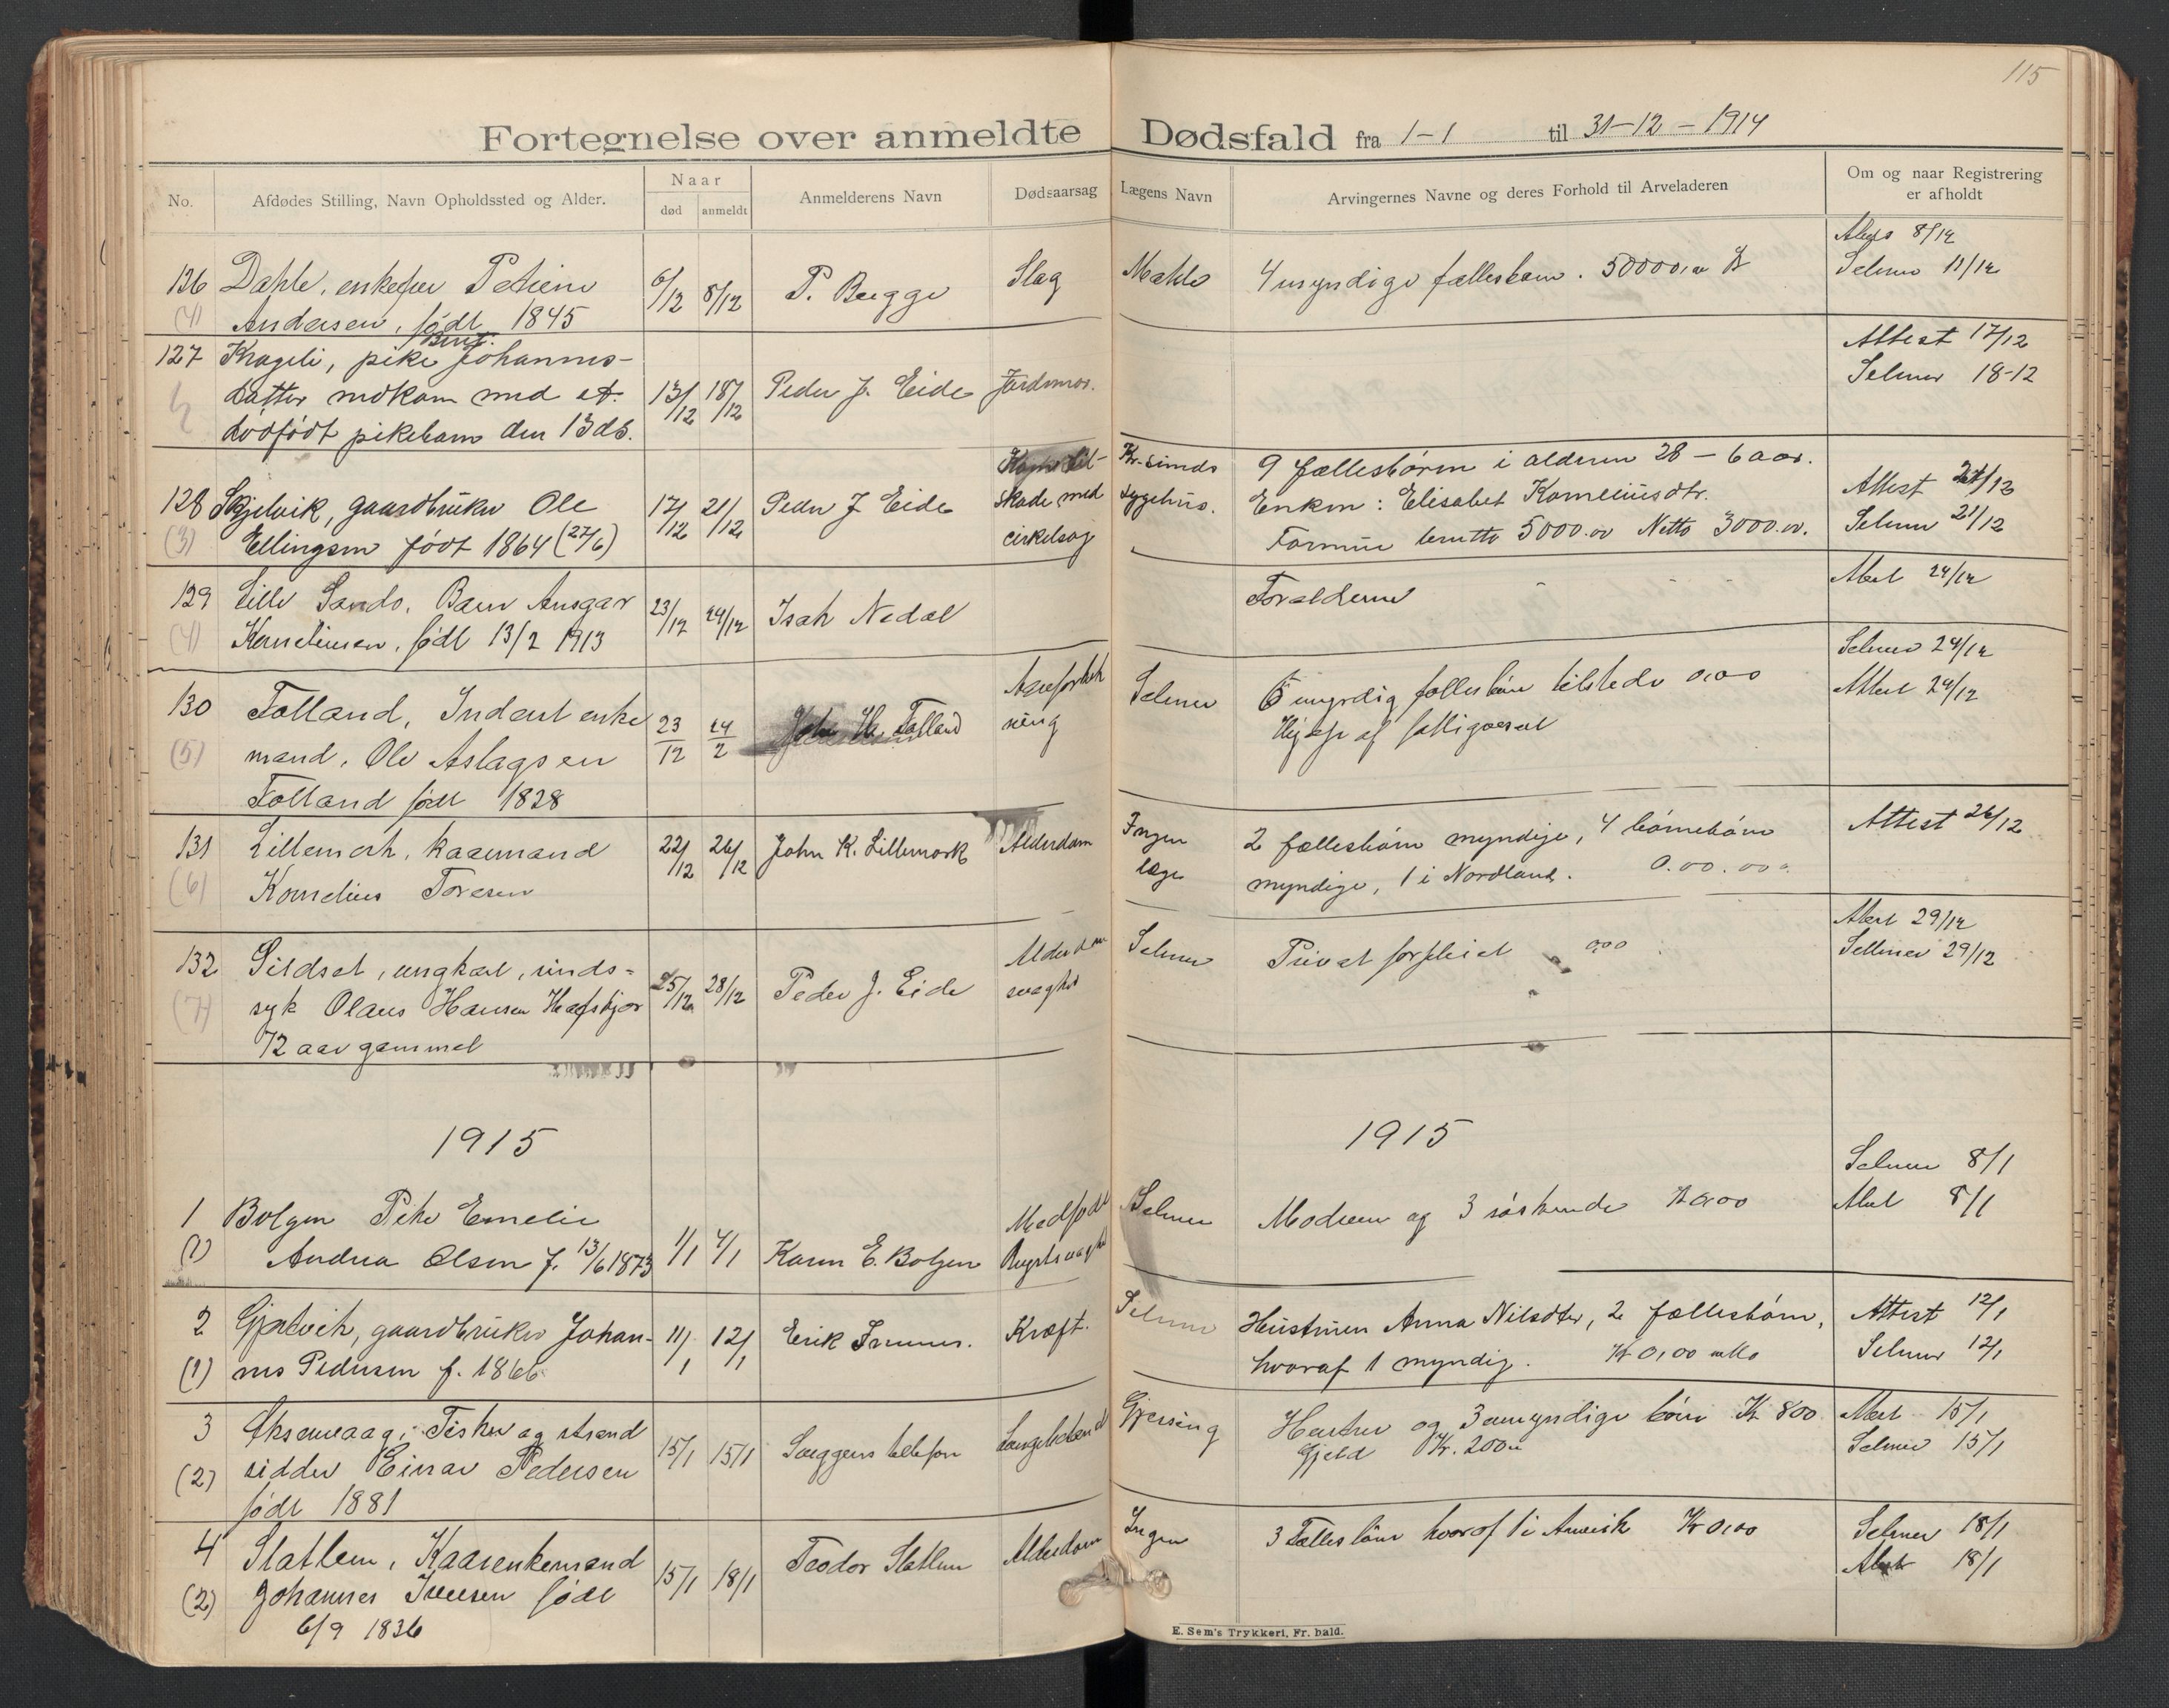 115
Fortegnelse over anmeldte Dødsfald fra 1-1 til 31-12-1914
No.
Afdødes Stilling, Navn Opholdssted og Alder.
Naar
død
anmeldt
Anmelderens Navn
Dødsaarsag
Lægens Navn
Arvingernes Navne og deres Forhold til Arveladeren
Om og naar Registrering
er afholdt
126 Dahle, enkefru
(4) Andersen, født 1845
6/12 8/12
P. Bugge
Slag
4 umyndige fællesbarn. 50000,00 Kr
8/12
Selmer 11/12
127 Krageli, pike Johannes-
datter nedkom med et
dødfødt pikebarn den 13 ds.
13/12 18/12
Peder J. Eide
Jordmor.
Attest 17/12
Selmer 18-12
128 Skjelvik, gaardbruker Ole
(3) Ellingsen født 1864 (27/6)
17/12 21/12
Peder J Eide
skade med
cirkelsag
Kr.sunds
sygehus.
9 fællesbørn i alderen 28 – 6 aar.
Enken: Elisabet Korneliusdtr.
Formue brutto 5000.00 Netto 3000.00.
Attest 21/12
Selmer 21/12
129 Lille Sandø, Barn Ansgar
(4) Korneliussen, født 13/2 1913
23/12 24/12
Isak Nedal
Forælderne
Attest 24/12
Selmer 24/12
130 Tolland, Inderst enke
(5) mand, Ole Aslagsen
Tolland født 1828
23/12 24/2
Tolland
Aareforkalk
ning
Selmer
6 myndig fællesbørn tilstede 0,00
Hjelp af fattigvæsen
Attest 24/12
131 Lillemork, kaarmand
(6) Kornelius Toresen
22/12 26/12
John K. Lillemork
Alderdom
Ingen
læge
2 fællesbørn myndige, 4 børnebørn
myndige, 1 i Nordland. 0.00.00
Attest 26/12
132 Sildset, ungkarl, sinds-
(7) syk Olaus Hansen
72 aar gammel
25/12 28/12
Peder J. Eide
Alderdom
svaghet
Selmer
Privat forpleiet 0,00
Attest 29/12
Sellmer 29/12
1915
1915
1 Bolgen Pike Emelie
(1) Andrea Olsen f. 13/6 1873
1/1 4/1
Karen E. Bolgen
Medfødt
Selmer
Moderen og 3 søskende Kr 0,00
Selmer 8/1
Attest 8/1
2 Gjelvik, gaardbruker Johan-
(1) nes Pedersen f. 1866
11/1 12/1
Erik
Kræft.
Selmer
Hustruen Anna Nilsdter, 2 fællesbørn,
hvoraf 1 myndig. Kr 0,00 netto
Attest 12/1
Selmer 12/1
3 Fisker og strand
(2) sidder Einar Pedersen
født 1881
15/1 15/1
telefon
Gjersing
Hustru og 3 umyndige børn Kr 800
Gjeld Kr. 200
Attest 15/1
Selmer 15/1
4 Slatlem, Kaarenkemand
(2) Johannes Iversen født
6/9 1836
15/1 18/1
Teodor Slatlem
Alderdom
Ingen
3 Fællesbørn hvoraf 1 i Amerik Kr 0,00
Selmer 18/1
Attest 18/1
E. Sem's Trykkeri, Fr. hald.